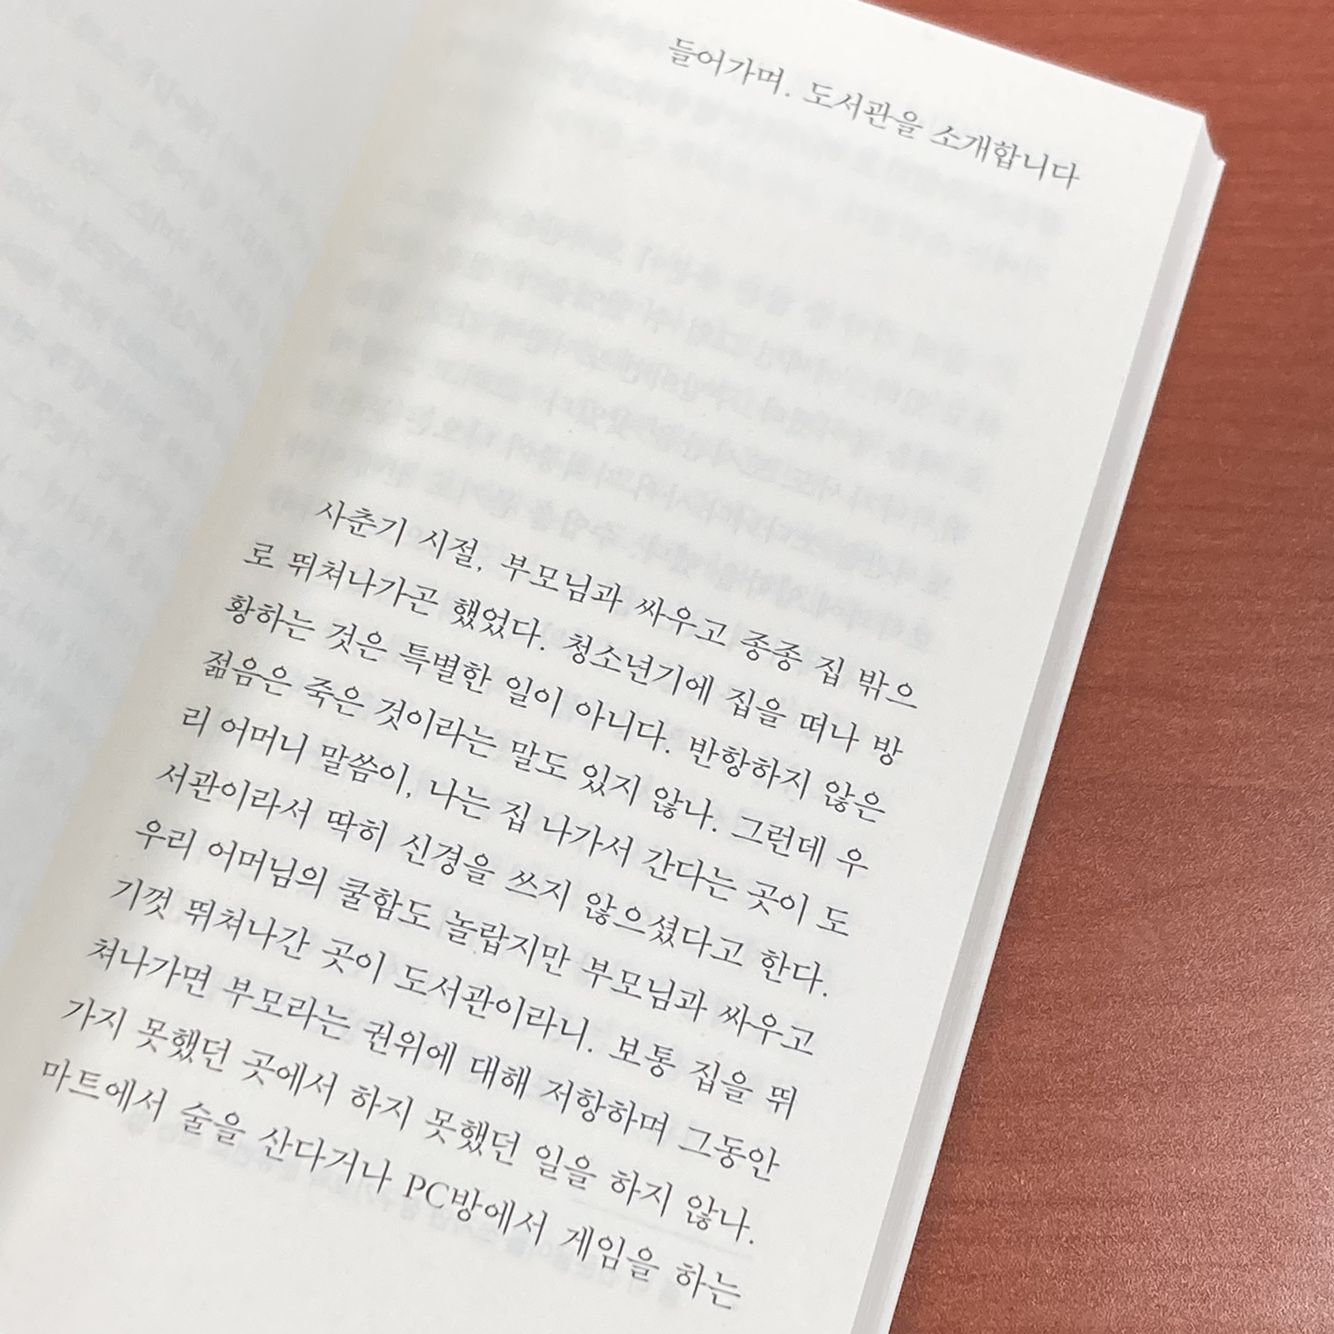 들어가며. 도서관을 소개합니다
사춘기 시절, 부모님과 싸우고 종종 집 밖으
로 뛰쳐나가곤 했었다. 청소년기에 집을 떠나 방
황하는 것은 특별한 일이 아니다. 반항하지 않은
젊음은 죽은 것이라는 말도 있지 않나. 그런데 우
리 어머니 말씀이, 나는 집 나가서 간다는 곳이 도
서관이라서 딱히 신경을 쓰지 않으셨다고 한다.
우리 어머님의 쿨함도 놀랍지만 부모님과 싸우고
기껏 뛰쳐나간 곳이 도서관이라니. 보통 집을 뛰
쳐나가면 부모라는 권위에 대해 저항하며 그동안
가지 못했던 곳에서 하지 못했던 일을 하지 않나.
마트에서 술을 산다거나 PC방에서 게임을 하는